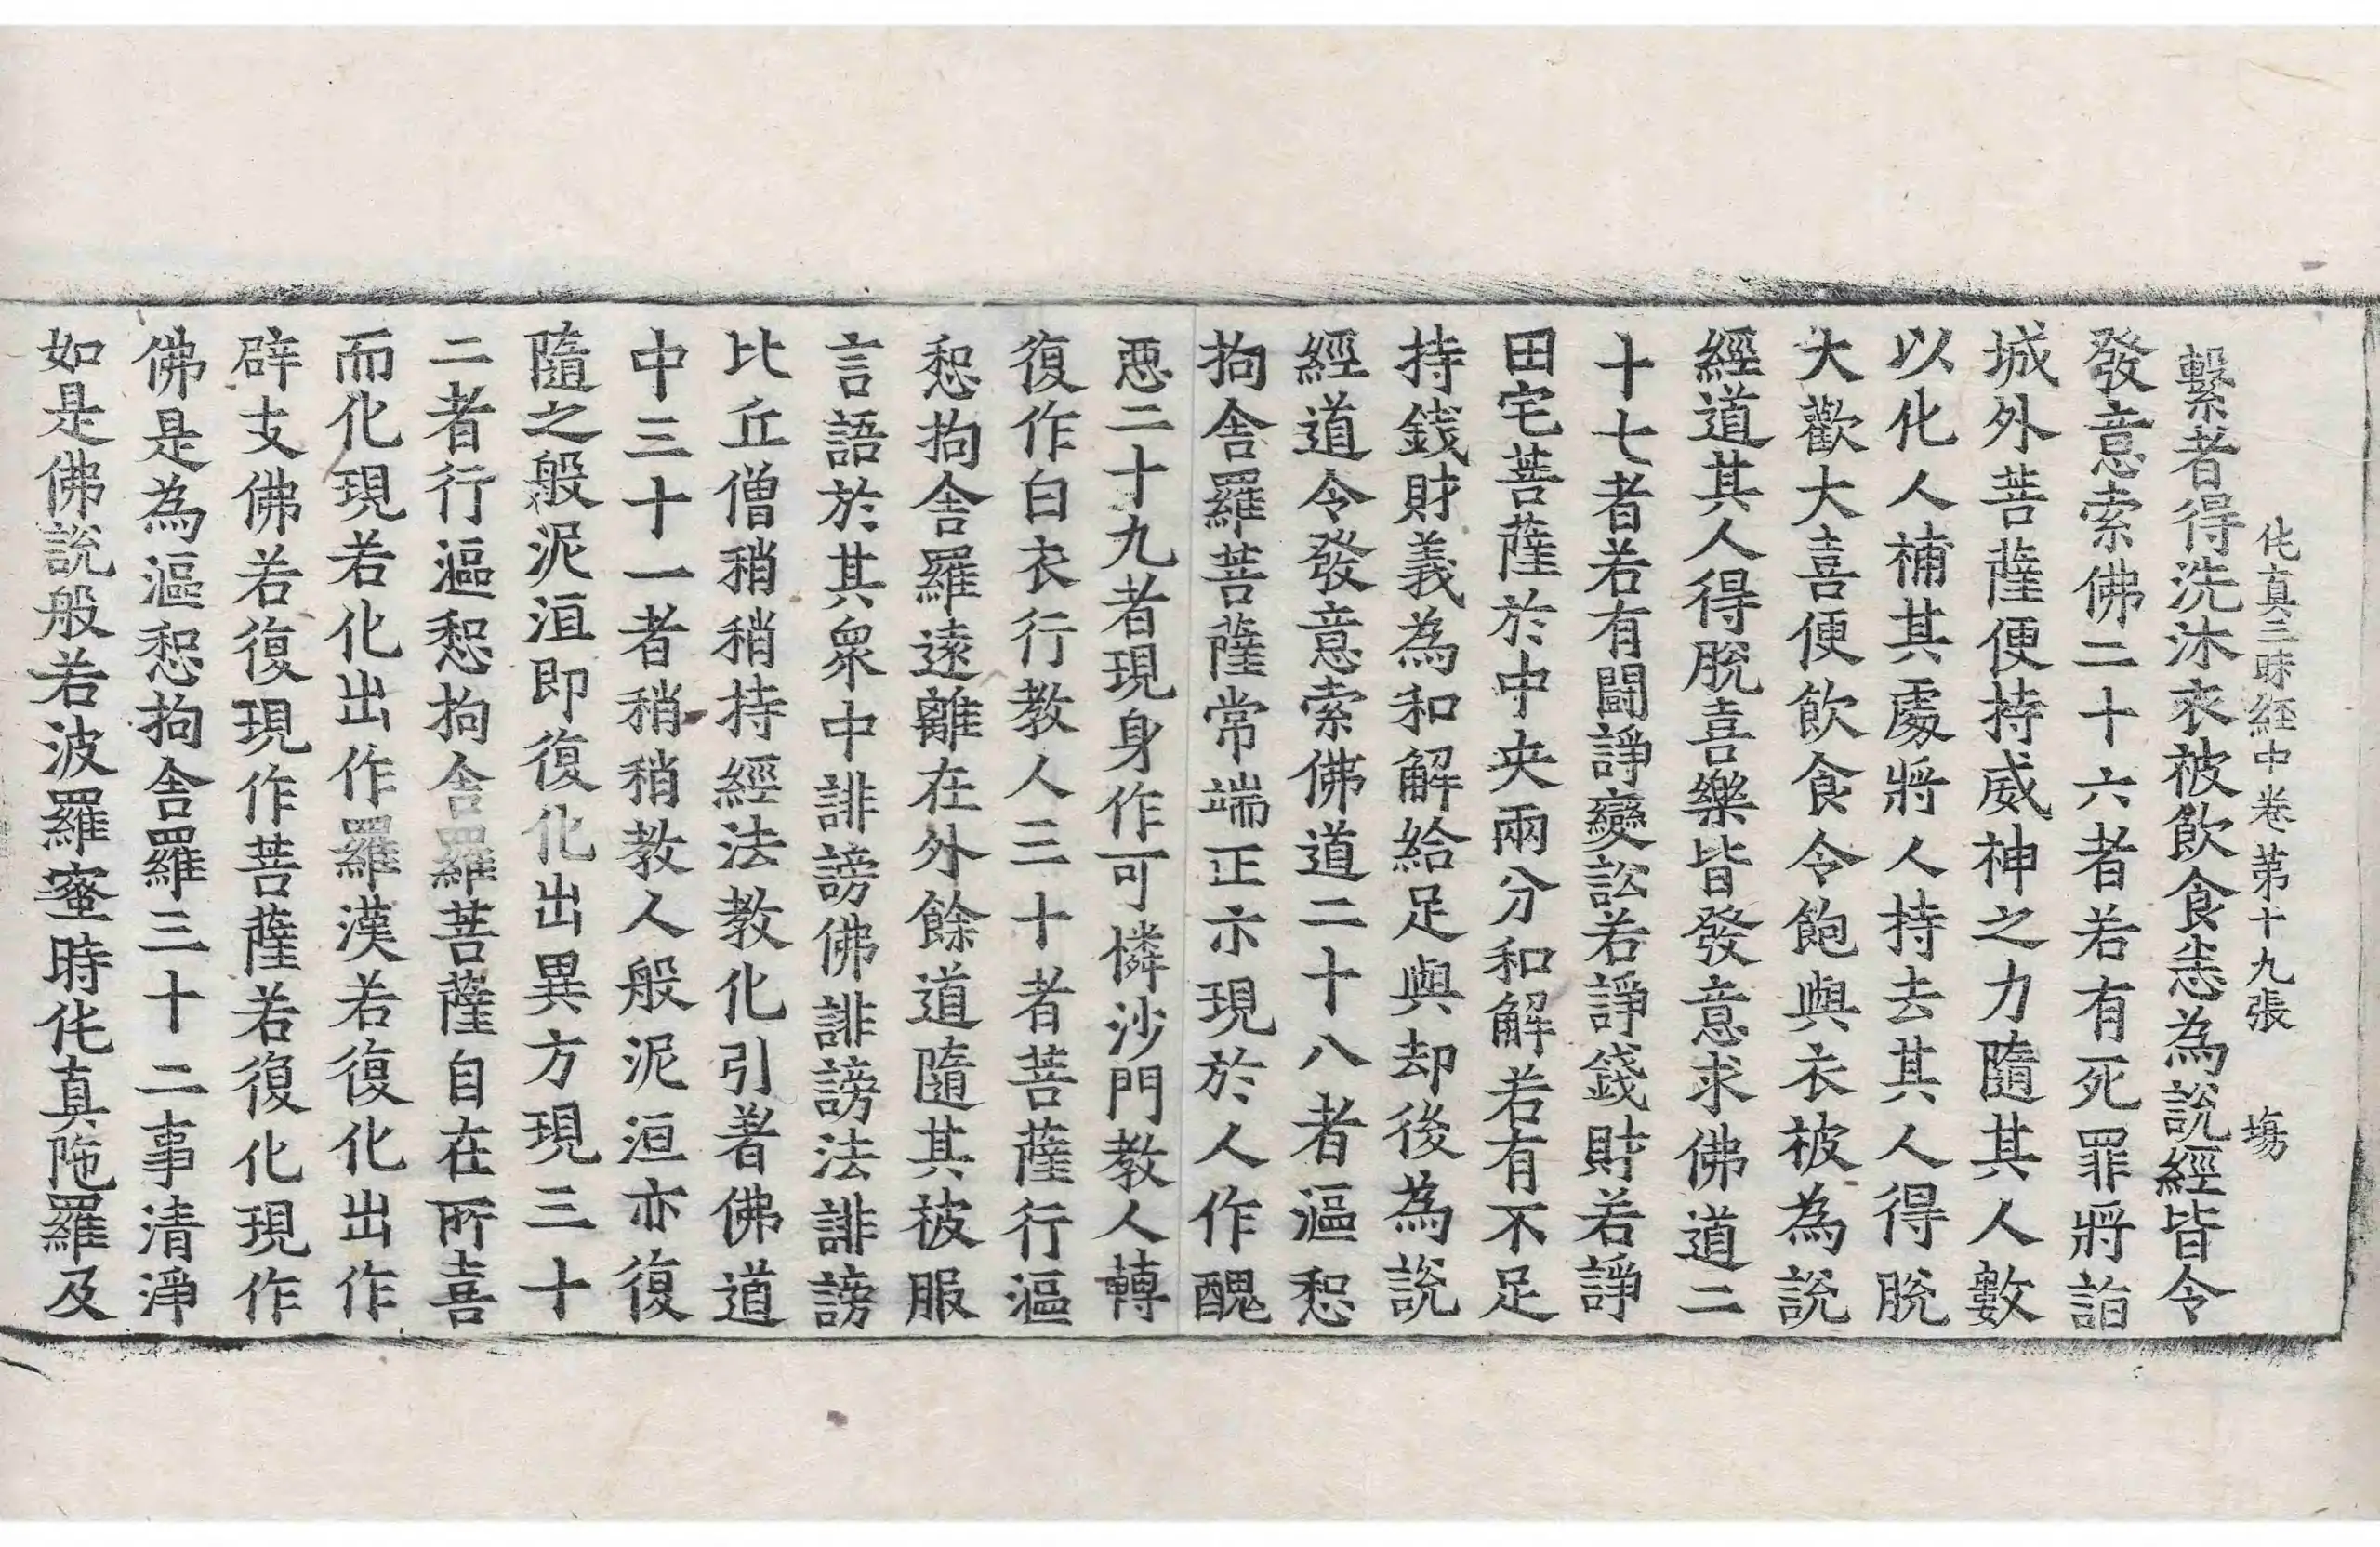 伅真三昧経中卷 第十九張 塲
繫者得洗沐衣被飲食悉為說經皆令
發意索佛二十六者若有死罪將詣
城外菩薩便持威神之力隨其人數
以化人補其處將人持去其人得脫
大歡大喜便飲食令飽與衣被為說
經道其人得脫喜樂皆發意求佛道二
十七者若有鬪諍變訟若諍錢財若諍
田宅菩薩於中央兩分和解若有不足
持錢財義為和解給足與却後為說
經道令發意索佛道二十八者漚惒
拘舍羅菩薩常端正示現於人作醜
惡二十九者現身作可憐沙門教人轉
復作白衣行教人三十者菩薩行漚
惒拘舍羅遠離在外餘道隨其被服
言語於其衆中誹謗佛誹謗法誹謗
比丘僧稍稍持經法教化引著佛道
中三十一者稍稍教人般泥洹亦復
隨之般泥洹即復化出異方現三十
二者行漚惒拘舍羅菩薩自在所喜
而化現若化出作羅漢若復化出作
辟支佛若復現作菩薩若復化現作
佛是為漚惒拘舍羅三十二事清淨
如是佛說般若波羅蜜時伅真陁羅及